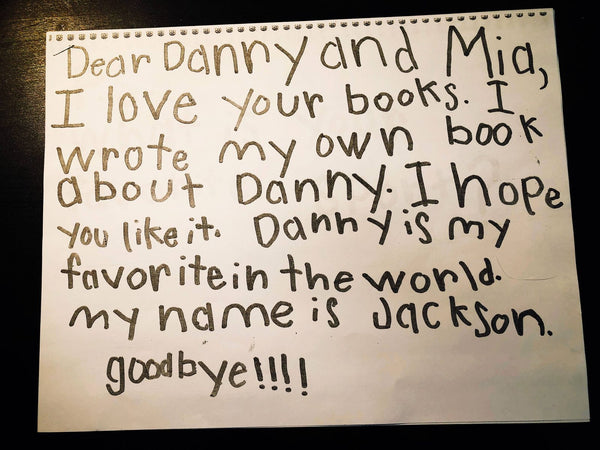 Dear Danny and Mia,
I love your books. I
wrote my own book
about Danny. I hope
you like it. Danny is my
favorite in the world.
my name is Jackson.
goodbye!!!!